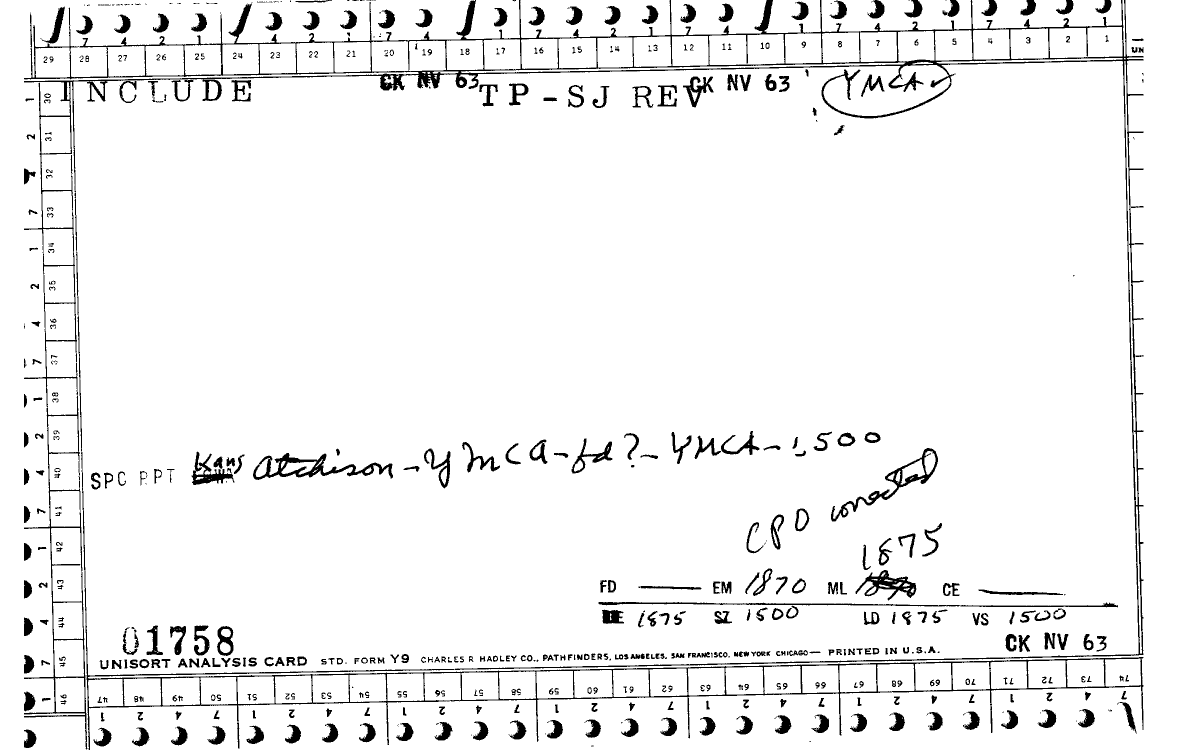 7 4 2 1 7 4 2 1 7 4 2 1 7 4 2 1 7 4 2 1 7 4 2 1
29 28 27 26 25 24 23 22 21 20 19 18 17 16 15 14 13 12 11 10 9 8 7 6 5 4 3 2 1
INCLUDE CK NV 63 TP-SJ REV CK NV 63 YMCA
1 30
2 31
4 32
7 33
1 34
2 35
4 36
7 37
1 38
2 39
4 40
7 41
1 42
2 43
4 44
7 45
1 46
SPC RPT Kans Atchison - YMCA - fd? - YMCA - 1,500
CPD corrected
1875
FD — EM 1870 ML 1870 CE —
DE 1875 SZ 1500 LD 1875 VS 1500
01758 CK NV 63
UNISORT ANALYSIS CARD STD. FORM Y9 CHARLES R HADLEY CO., PATHFINDERS, LOS ANGELES, SAN FRANCISCO, NEW YORK CHICAGO — PRINTED IN U.S.A.
47 48 49 50 51 52 53 54 55 56 57 58 59 60 61 62 63 64 65 66 67 68 69 70 71 72 73 74
1 2 4 7 1 2 4 7 1 2 4 7 1 2 4 7 1 2 4 7 1 2 4 7 1 2 4 7